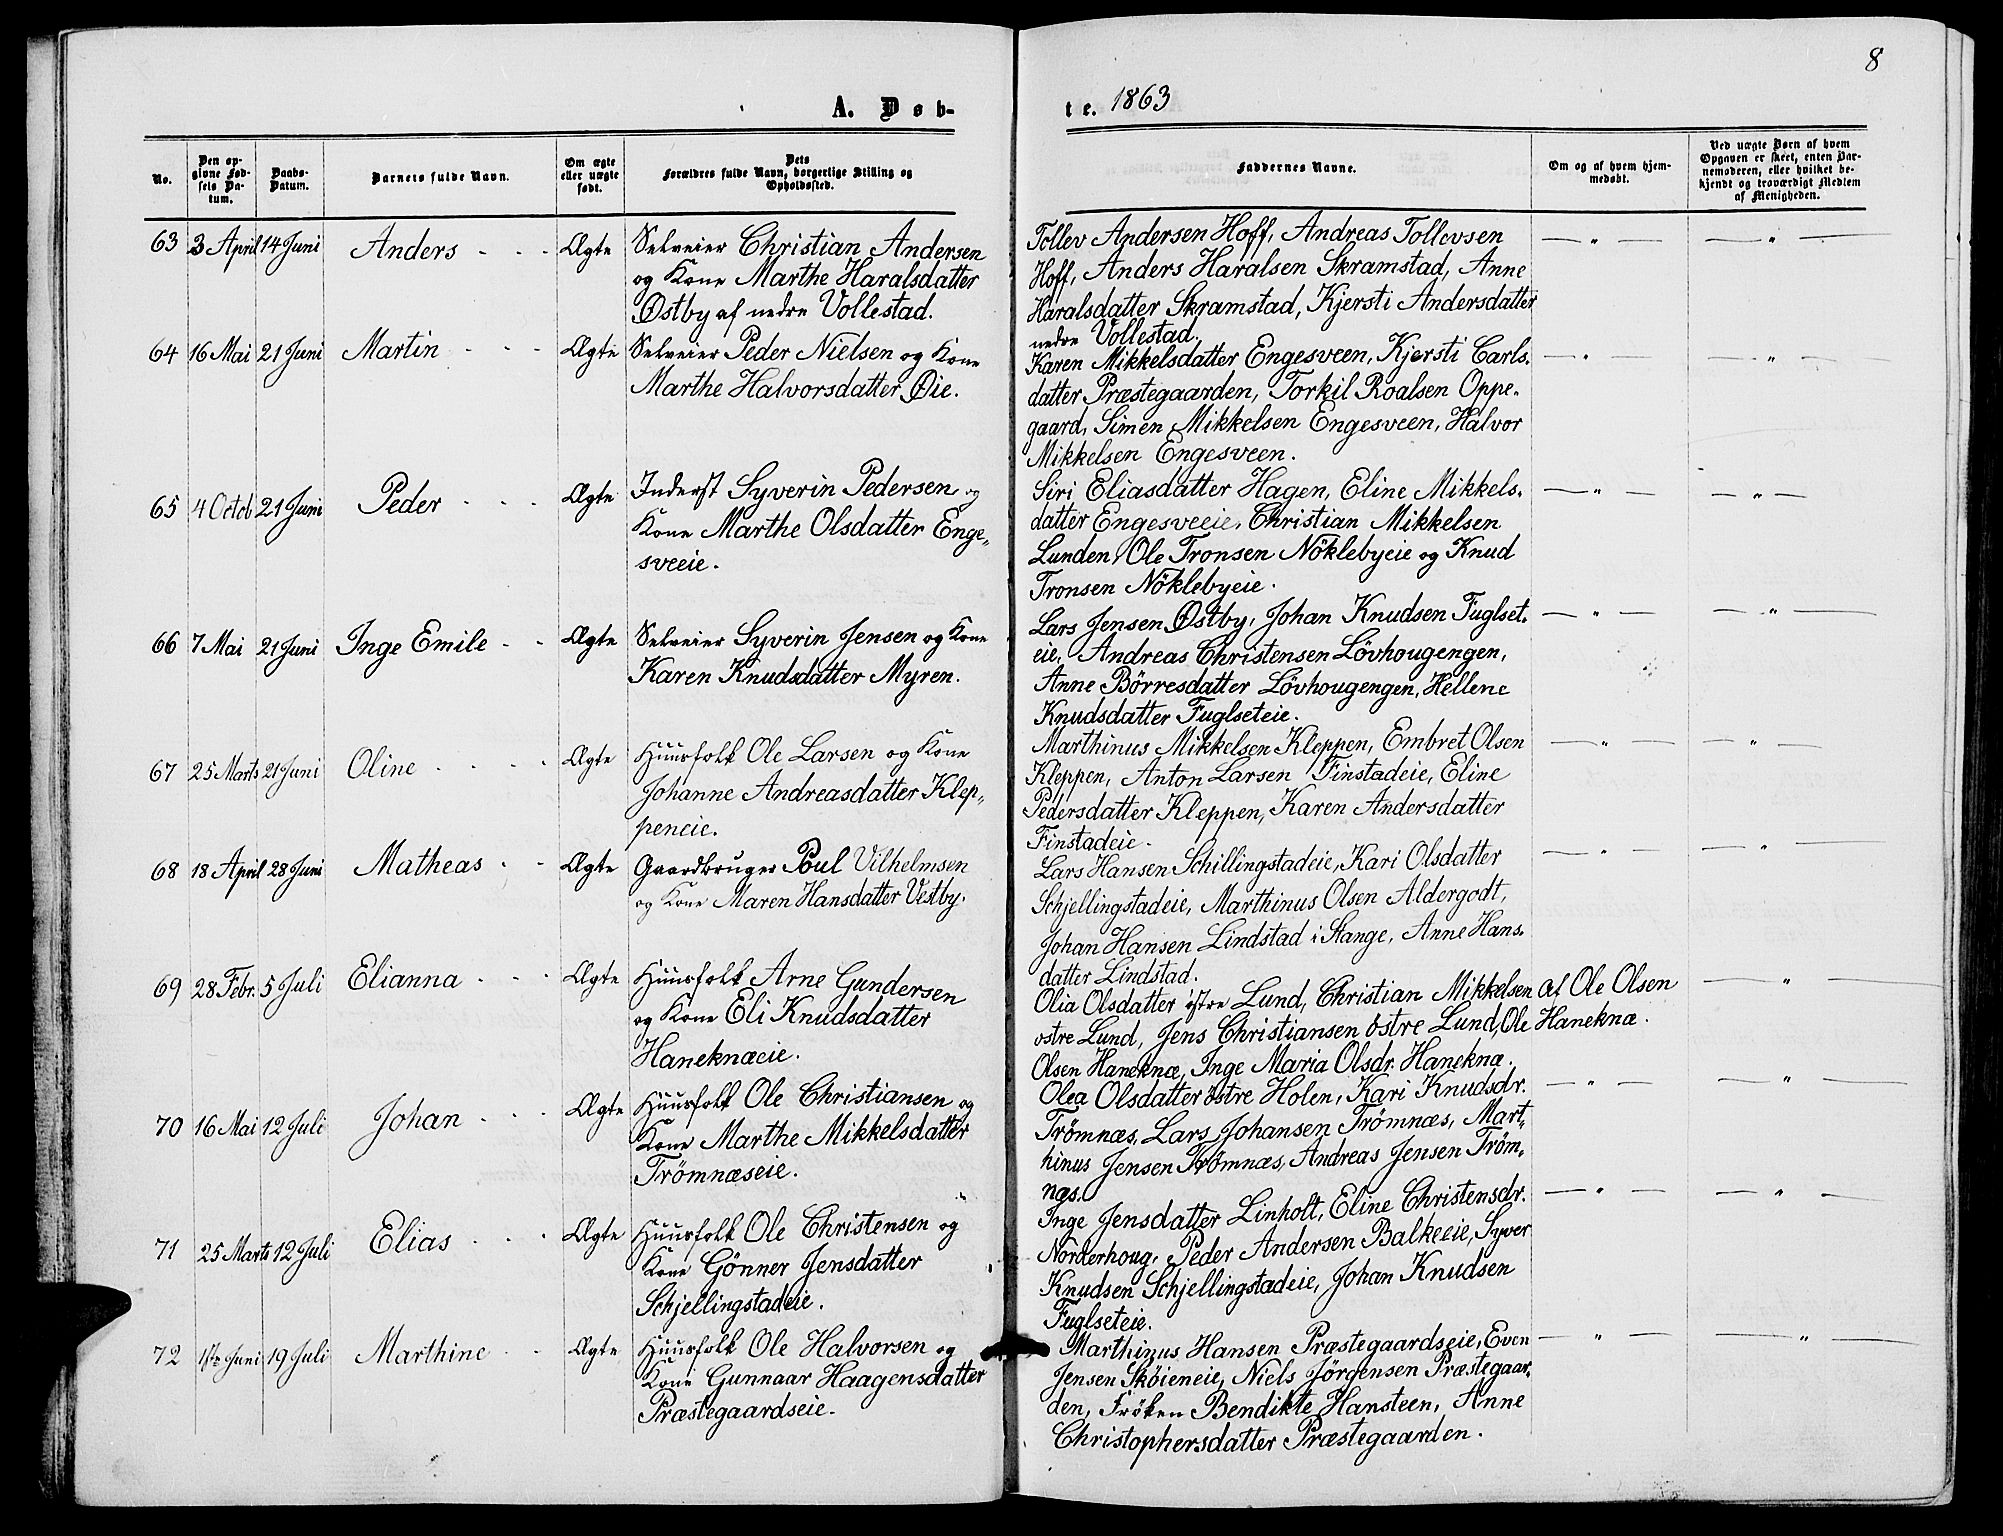 8
A. Døb-
te. 1863
No.
Den op-
givne Fød-
sels Da-
tum.
Daabs-
Datum.
Barnets fulde Navn.
Om ægte
eller uægte
født.
Dets
Forældres fulde Navn, borgerlige Stilling og
Opholdssted.
Faddernes Navne.
Om og af hvem hjem-
medøbt.
Ved uægte Børn af hvem
Opgaven er skeet, enten Bar-
nemoderen, eller hvilket be-
kjendt og troværdigt Medlem
af Menigheden.
63 3 April 14 Juni Anders - - - Ægte
Selveier Christian Andersen
og Kone Marthe Haralsdatter
Østby af nedre Vollestad.
Tollev Andersen Hoff, Andreas Tollevsen
Hoff, Anders Haralsen Skramstad, Anne
Haralsdatter Skramstad, Kjersti Andersdatter
nedre Vollestad,
— " — — " —
64 16 Mai 21 Juni Martin - - - Ægte
Selveier Peder Nielsen og Kone
Marthe Halvorsdatter Øie.
Karen Mikkelsdatter Engesveen, Kjersti Carls-
datter Præstegaarden, Torkil Roalsen Oppe-
gaard, Simen Mikkelsen Engesveen, Halvor
Mikkelsen Engesveen.
— " — — " —
65 4 Octob 21 Juni Peder - - - Ægte
Inderst Syverin Pedersen og
Kone Marthe Olsdatter Enge-
sveeie.
Siri Eliasdatter Hagen, Eline Mikkels-
datter Engesveeie, Christian Mikkelsen
Lunden, Ole Tronsen Nöklebyeie og Knud
Tronsen Nöklebyeie.
— " — — " —
66 7 Mai 21 Juni Inge Emile - - Ægte
Selveier Syverin Jensen og Kone
Karen Knudsdatter Myren.
Lars Jensen Østby, Johan Knudsen Fuglset-
eie, Andreas Christensen Lövhougengen,
Anne Börresdatter Lövhougengen, Hellene
Knudsdatter Fuglseteie.
— " — — " —
67 25 Marts 21 Juni Oline - - - - Ægte
Huusfolk Ole Larsen og Kone
Johanne Andreasdatter Klep-
peneie.
Marthinus Mikkelsen Kleppen, Embret Olsen
Kleppen, Anton Larsen Finstadeie, Eline
Pedersdatter Kleppen, Karen Andersdatter
Finstadeie.
— " — — " —
68 18 April 28 Juni Matheas - - Ægte
Gaardbruger Poul Vilhelmsen
og Kone Maren Hansdatter Vestby.
Lars Hansen Schillingstadeie, Kari Olsdatter
Schjellingstadeie, Marthinus Olsen Aldergodt,
Johan Hansen Lindstad i Stange, Anne Hans-
datter Lindstad.
— " — — " —
69 28 Febr. 5 Juli Elianna - - - Ægte
Huusfolk Arne Gundersen
og Kone Eli Knudsdatter
Haneknæeie.
Olia Olsdatter östre Lund, Christian Mikkelsen
ostre Lund, Jens Christiansen östre Lund, Ole
Olsen Haneknæ, Inge Maria Olsdr. Haneknæ.
af Ole Olsen
Haneknæ.
— " —
70 16 Mai 12 Juli Johan - - - Ægte
Huusfolk Ole Christiansen og
Kone Marthe Mikkelsdatter
Trömnæseie.
Olea Olsdatter östre Holen, Kari Knudsdr.
Trömnæs, Lars Johansen Trömnæs, Mart-
hinus Jensen Trömnæs, Andreas Jensen Tröm-
næs.
— " — — " —
71 25 Marts 12 Juli Elias - - - Ægte
Huusfolk Ole Christensen og
Kone Gönner Jensdatter
Schjellingstadeie.
Inge Jensdatter Linholt, Eline Christensdr.
Norderhoug, Peder Andersen Balkeeie, Syver
Knudsen Schjellingstadeie, Johan Knudsen
Fuglseteie.
— " — — " —
72 1ste Juni 19 Juli Marthine - - Ægte
Huusfolk Ole Halvorsen og
Kone Gunnaar Haagensdatter
Præstegaardseie.
Marthinus Hansen Præstegaardseie, Even
Jensen Sköieneie, Niels Jörgensen Præstegaar-
den, Fröken Bendikte Hansteen, Anne
Christophersdatter Præstegaarden.
— " — — " —